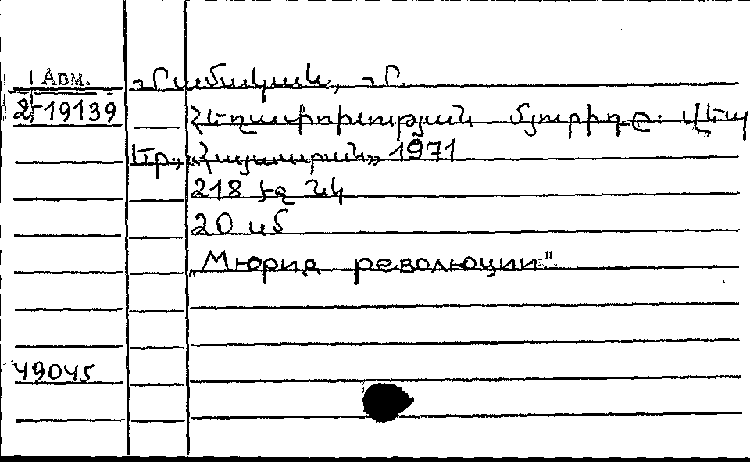 1 Арм.
2-19139
Դամական, Դ.
Հեղափոխության մյուրիդը: Վեպ
Եր., «Հայաստան» 1971
218 էջ նկ
20 սմ
„Мюрид революции"
49045